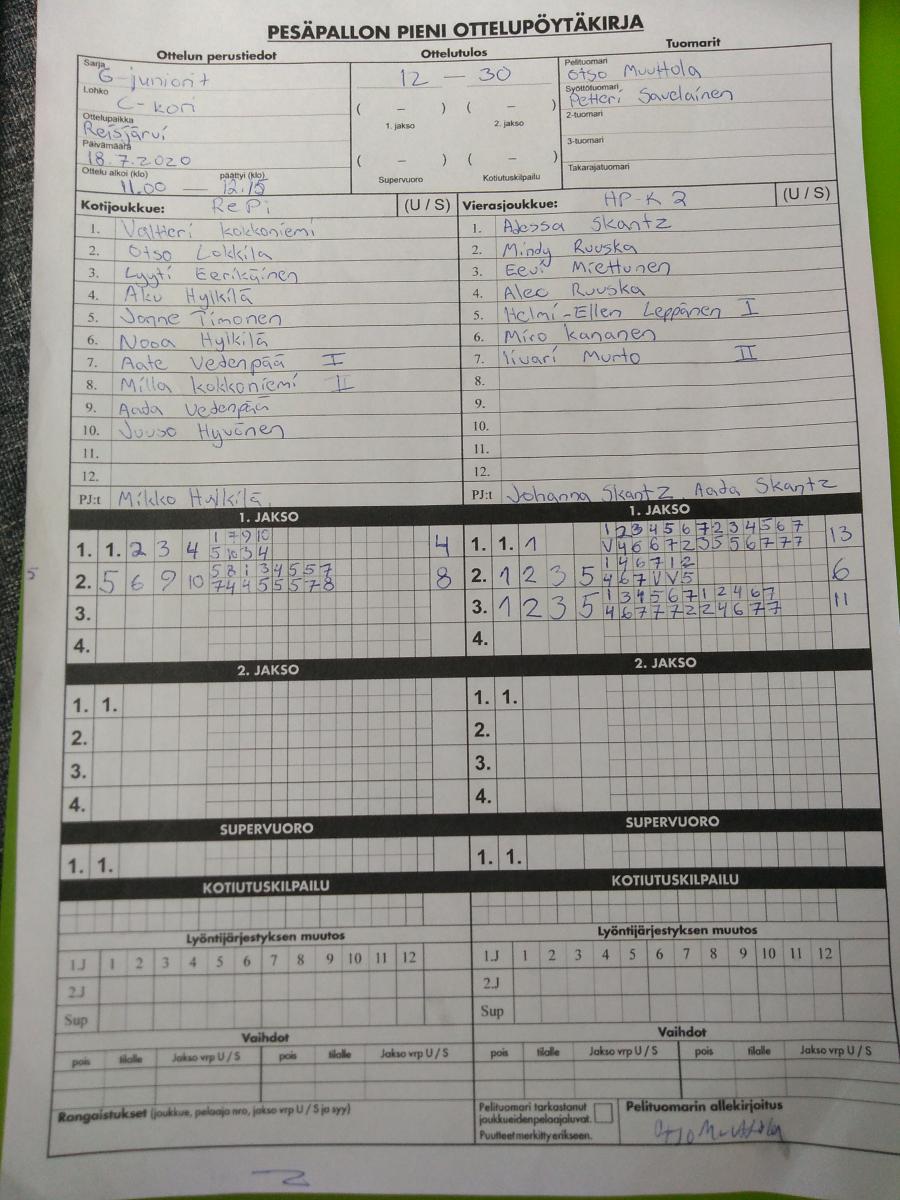 PESÄPALLON PIENI OTTELUPÖYTÄKIRJA
Ottelun perustiedot Ottelutulos Tuomarit
Sarja G-juniorit
Lohko C-kori
Ottelupaikka Reisjärvi
Päivämäärä 18.7.2020
Ottelu alkoi (klo) päättyi (klo)
11.00 — 12.15
12 — 30
( – ) ( – )
1. jakso 2. jakso
( – ) ( – )
Supervuoro Kotiutuskilpailu
Pelituomari Otso Muuttola
Syöttötuomari Petteri Savelainen
2-tuomari
3-tuomari
Takarajatuomari
Kotijoukkue: RePi (U / S)
1. Valtteri Kokkoniemi
2. Otso Lokkila
3. Lyyti Eerikäinen
4. Aku Hylkilä
5. Janne Timonen
6. Nooa Hylkilä
7. Aate Vedenpää I
8. Milla Kokkoniemi II
9. Aada Vedenpää
10. Juuso Hyvönen
11.
12.
PJ:t Mikko Hylkilä
Vierasjoukkue: HP-K 2 (U / S)
1. Adessa Skantz
2. Mindy Ruuska
3. Eevi Miettunen
4. Alec Ruuska
5. Helmi-Ellen Leppänen I
6. Miro Kananen
7. Iivari Murto II
8.
9.
10.
11.
12.
PJ:t Johanna Skantz, Aada Skantz
1. JAKSO
1. 1. 2 3 4 1 7 9 10 4
5 10 3 4
2. 5 6 9 10 5 8 1 3 4 5 5 7 8
7 4 4 5 5 5 7 8
3.
4.
1. JAKSO
1. 1. 1 1 2 3 4 5 6 7 2 3 4 5 6 7 13
V 4 6 6 7 2 3 5 5 6 7 7 7
2. 1 2 3 5 1 4 6 7 1 2 6
4 6 7 V V 5
3. 1 2 3 5 1 3 4 5 6 7 1 2 4 6 7 11
4 6 7 7 7 2 2 4 6 7 7
4.
2. JAKSO
1. 1.
2.
3.
4.
2. JAKSO
1. 1.
2.
3.
4.
SUPERVUORO
1. 1.
SUPERVUORO
1. 1.
KOTIUTUSKILPAILU
KOTIUTUSKILPAILU
Lyöntijärjestyksen muutos
1.J 1 2 3 4 5 6 7 8 9 10 11 12
2.J
Sup
Lyöntijärjestyksen muutos
1.J 1 2 3 4 5 6 7 8 9 10 11 12
2.J
Sup
Vaihdot
pois tilalle Jakso vrp U / S pois tilalle Jakso vrp U / S
Vaihdot
pois tilalle Jakso vrp U / S pois tilalle Jakso vrp U / S
Rangaistukset (joukkue, pelaaja nro, jakso vrp U / S ja syy)
Pelituomari tarkastanut
joukkueidenpelaajaluvat.
Puutteet merkitty erikseen.
Pelituomarin allekirjoitus
Otso Muuttola